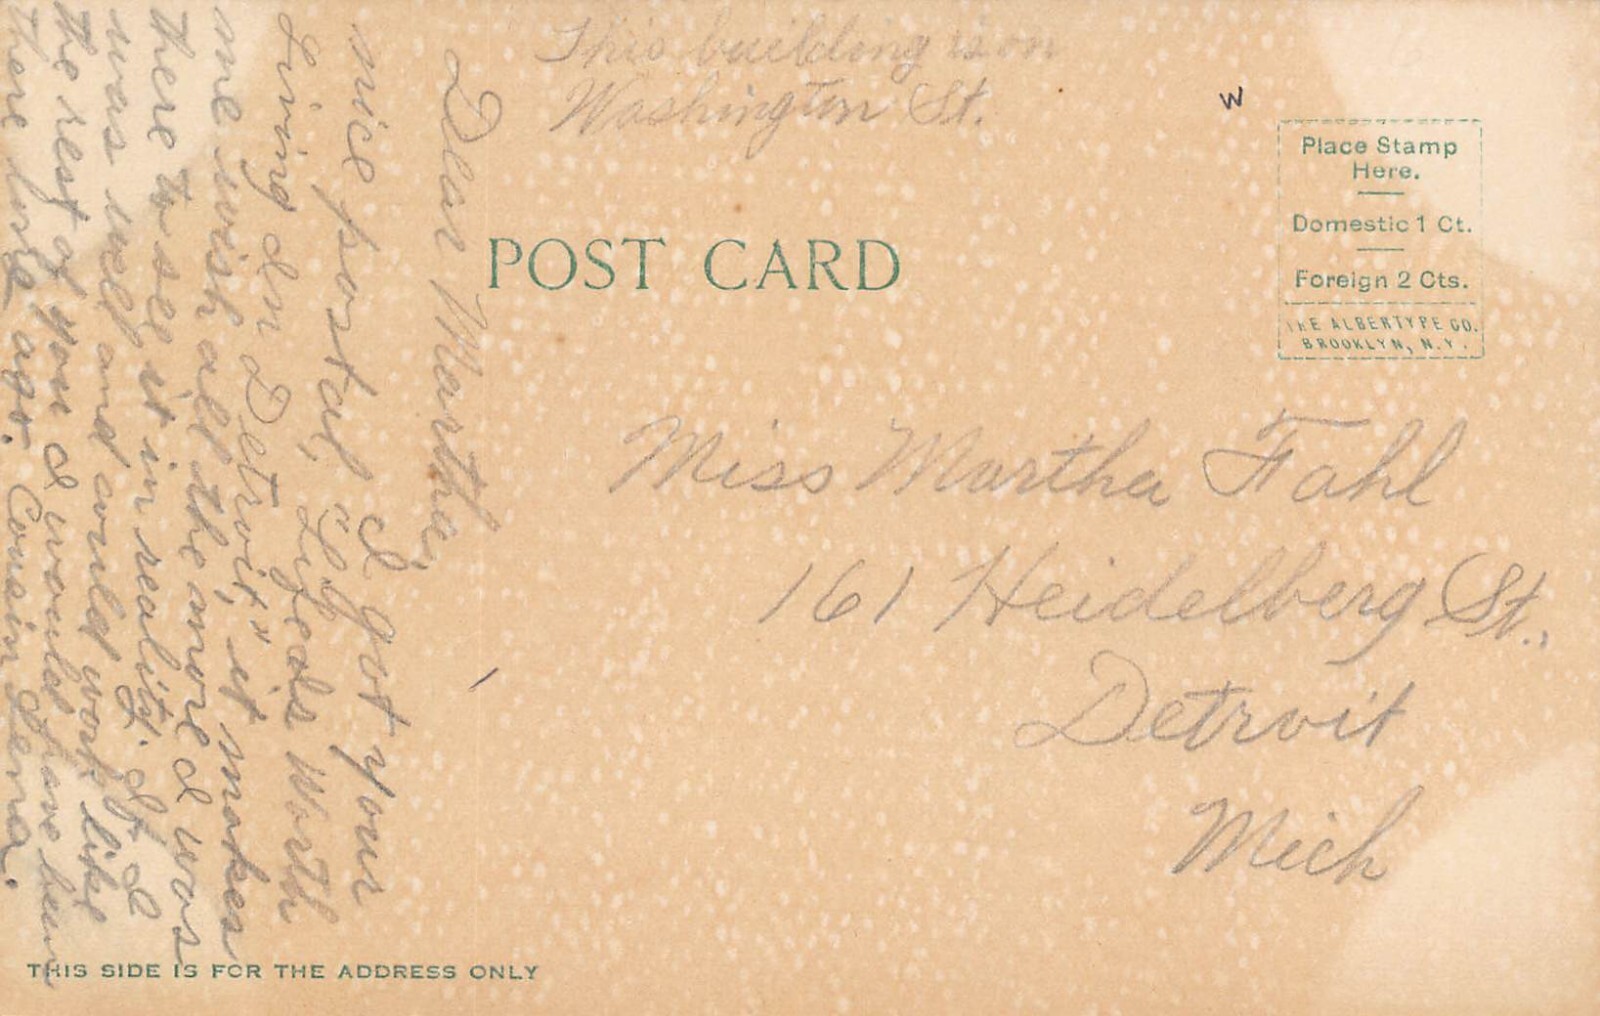 This building is on
Washington St.
W
Place Stamp
Here.
Domestic 1 Ct.
Foreign 2 Cts.
THE ALBERTYPE CO.
BROOKLYN, N.Y.
POST CARD
Miss Martha Fahl
161 Heidelberg St.,
Detroit
Mich
Dear Martha,
I got your
nice postal, "Life is Worth
Living In Detroit," it makes
me wish all the more I was
there to see it in reality. If I
was well and could work like
the rest of you I would have been
there long ago. Cousin Lena.
THIS SIDE IS FOR THE ADDRESS ONLY